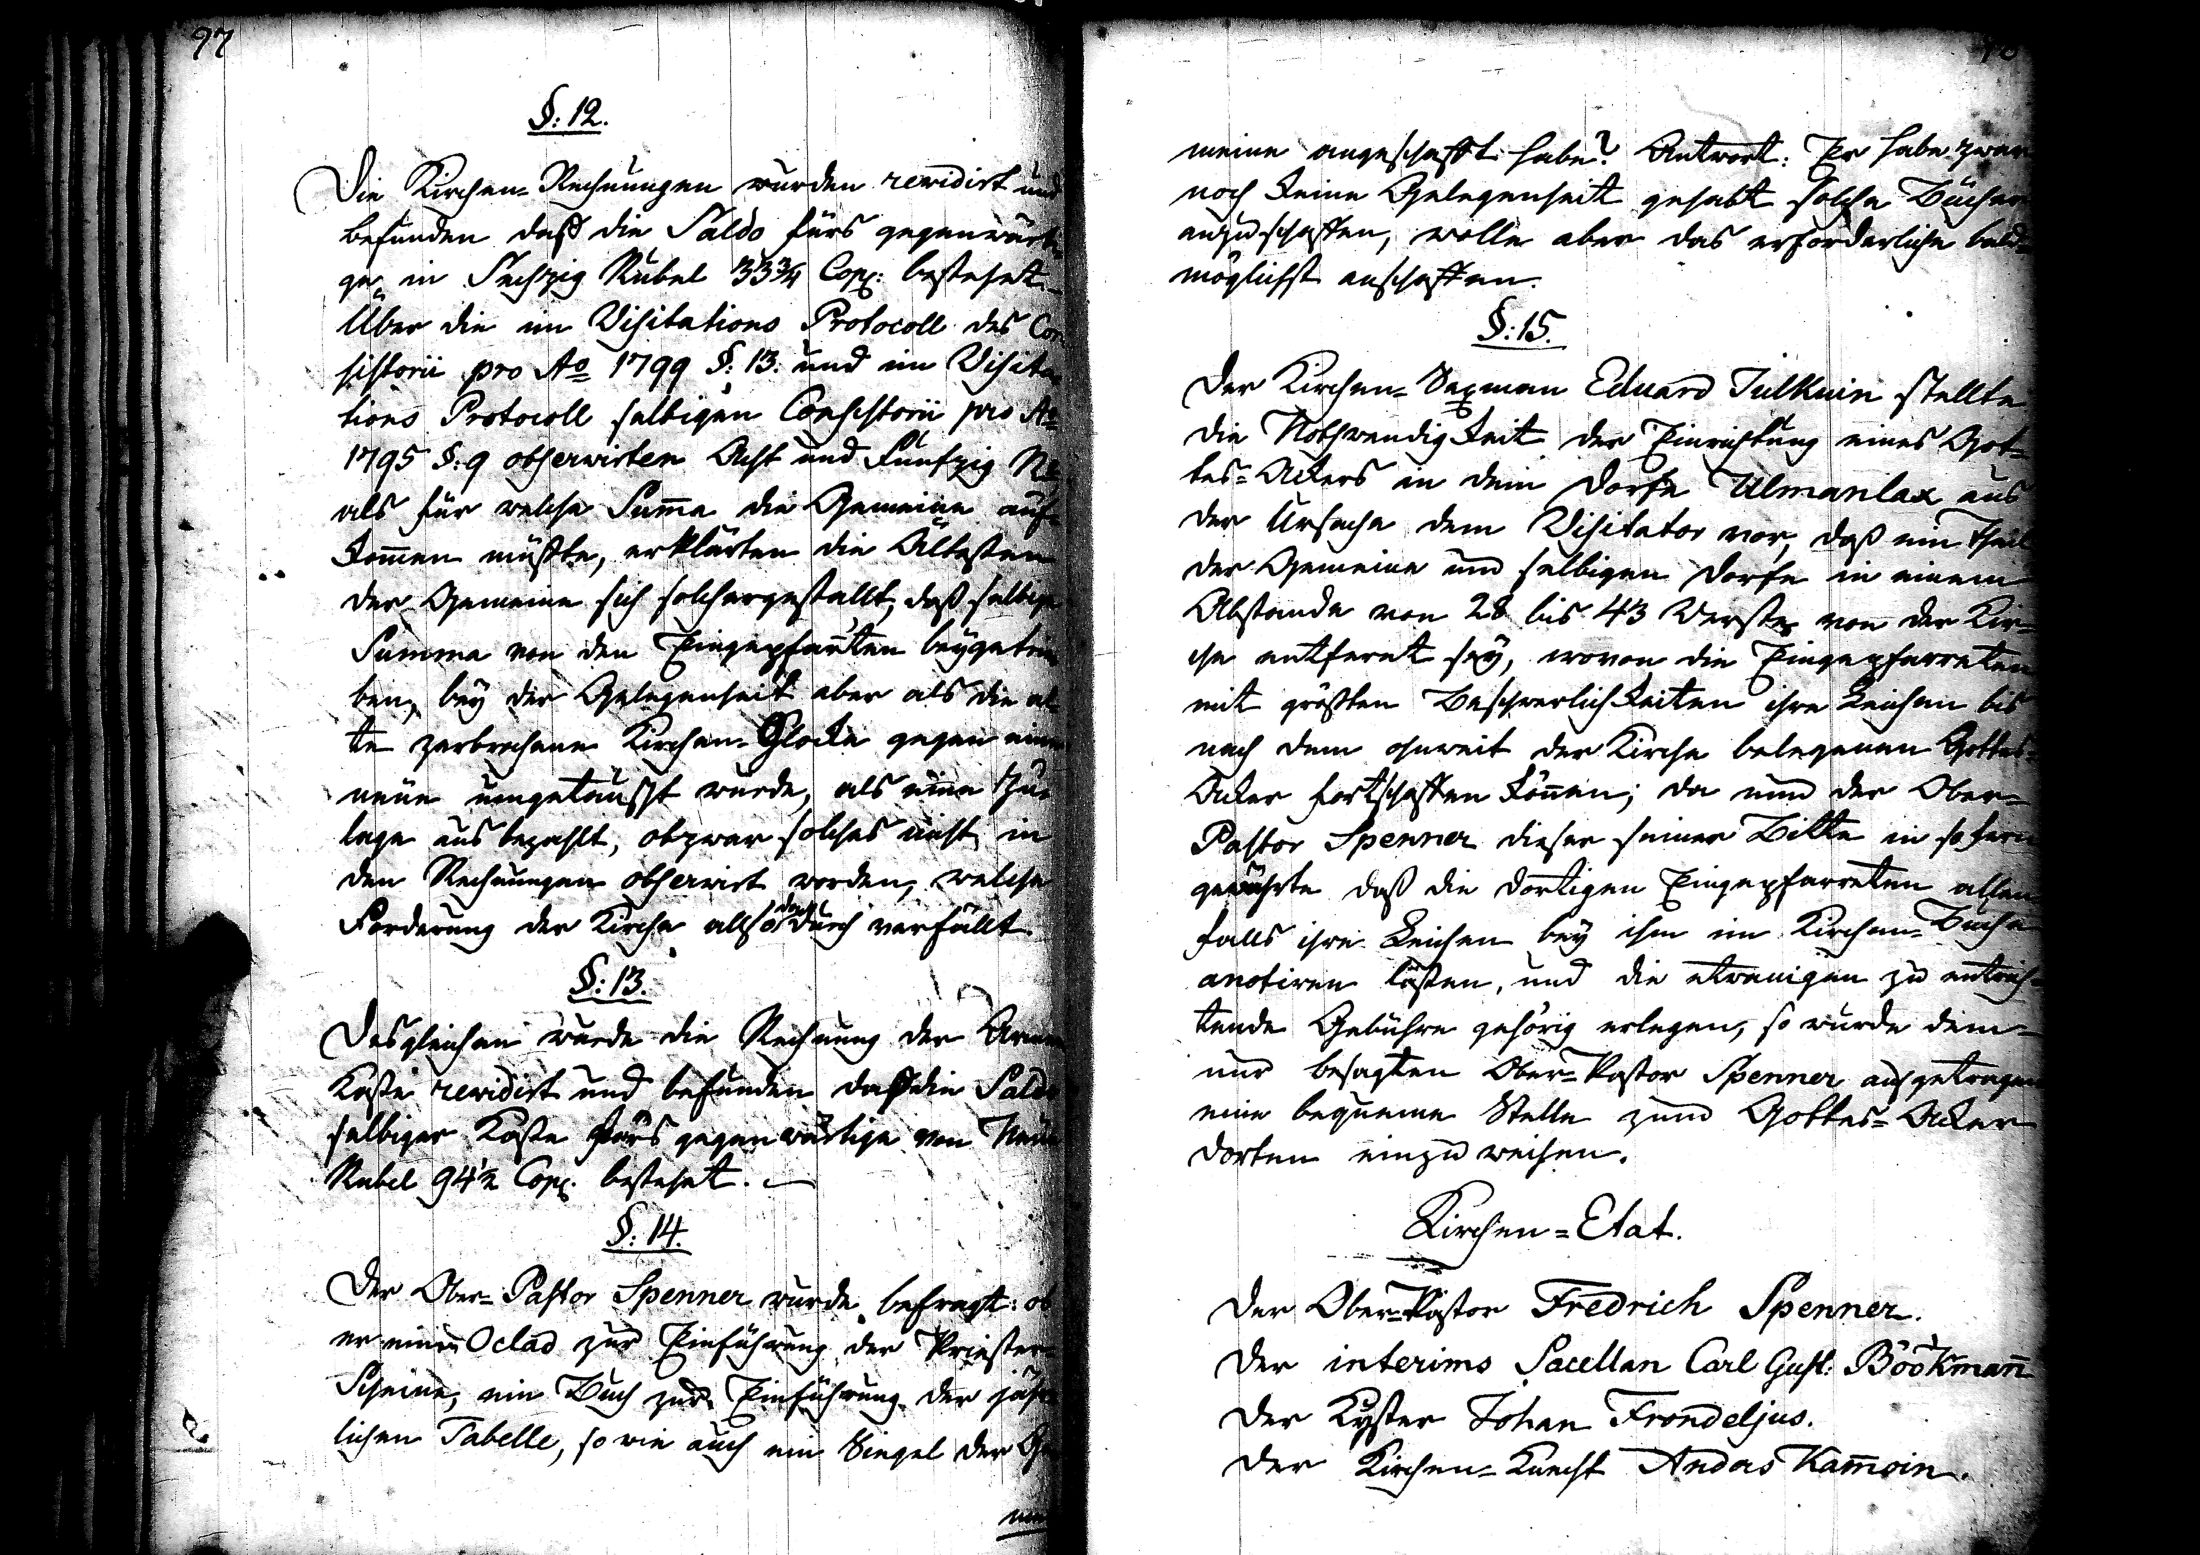 97
§: 12.
Die Kirchen-Rechnungen wurden revidirt und
befunden daß die Saldo fürs gegenwärti-
ge in Sechzig Rubel 33¾ Cop: bestehet.
Über die im Visitations Protocoll des Con-
sistorii pro Ao 1799 §: 13. und im Visita-
tions Protocoll selbigen Consistorii pro Ao
1795 §: 9 observirten Acht und Fünfzig
als für welche Suma die Gemeine auf-
komen müßte, erklärten die Ältesten
der Gemeine sich solchergestallt, daß selbige
Summa von den Eingepfarrten beygetrie-
ben, bey der Gelegenheit aber als die al-
te zerbrochene Kirchen-Glocke gegen eine
neue umgetauscht wurde, als eine Zu-
lage ausbezahlt, obzwar solches nicht in
den Rechnungen observirt worden, welche
Forderung der Kirche allso dadurch verfällt.
§: 13.
Desgleichen wurde die Rechnung der Armen
Kaße revidirt und befunden daß die Saldo
selbiger Kaße fürs gegenwärtige von Neun
Rubel 94½ Cop. bestehet.
§: 14.
Der Ober-Pastor Spenner wurde befragt: ob
er einen Oclad zur Einführung der Priester-
Scheine, ein Buch zur Einführung der jähr-
lichen Tabelle, so wie auch ein Siegel der Ge-
meine angeschafft habe? Antwort: Er habe zwar
noch keine Gelegenheit gehabt solche Bücher
anzuschaffen, wolle aber das erforderliche bald-
möglichst anschaffen.
§: 15.
Der Kirchen-Sexman Eduard Julkuin stellte
die Nothwendigkeit der Einrichtung eines Got-
tes-Ackers in dem Dorfe Ulmanlax aus
der Ursache dem Visitator vor, daß ein Theil
der Gemeine und selbigen Dorfe in einem
Abstande von 28 bis 43 Werste von der Kir-
che entfernt sey, wovon die Eingepfarreten
mit größten Beschwerlichkeiten ihre Leichen bis
nach dem ohnweit der Kirche belegenen Gottes-
Acker fortschaffen könen; da nun der Ober-
Pastor Spenner dieser seiner Bitte in so fern
gewährte daß die dortigen Eingepfarreten allen-
falls ihre Leichen bey ihm im Kirchen-Buche
anotiren ließen, und die etwanigen zu entrich-
tende Gebühre gehörig erlegen, so wurde dem-
nur besagten Ober-Pastor Spenner aufgetragen
eine bequeme Stelle zum Gottes-Acker
dorten einzuweisen.
Kirchen-Etat.
Der Ober-Pastor Fredrich Spenner.
Der interims Sacellan Carl Gust: Böökman
Der Kyster Johan Frondeljus.
Der Kirchen-Knecht Anders Kamoin.